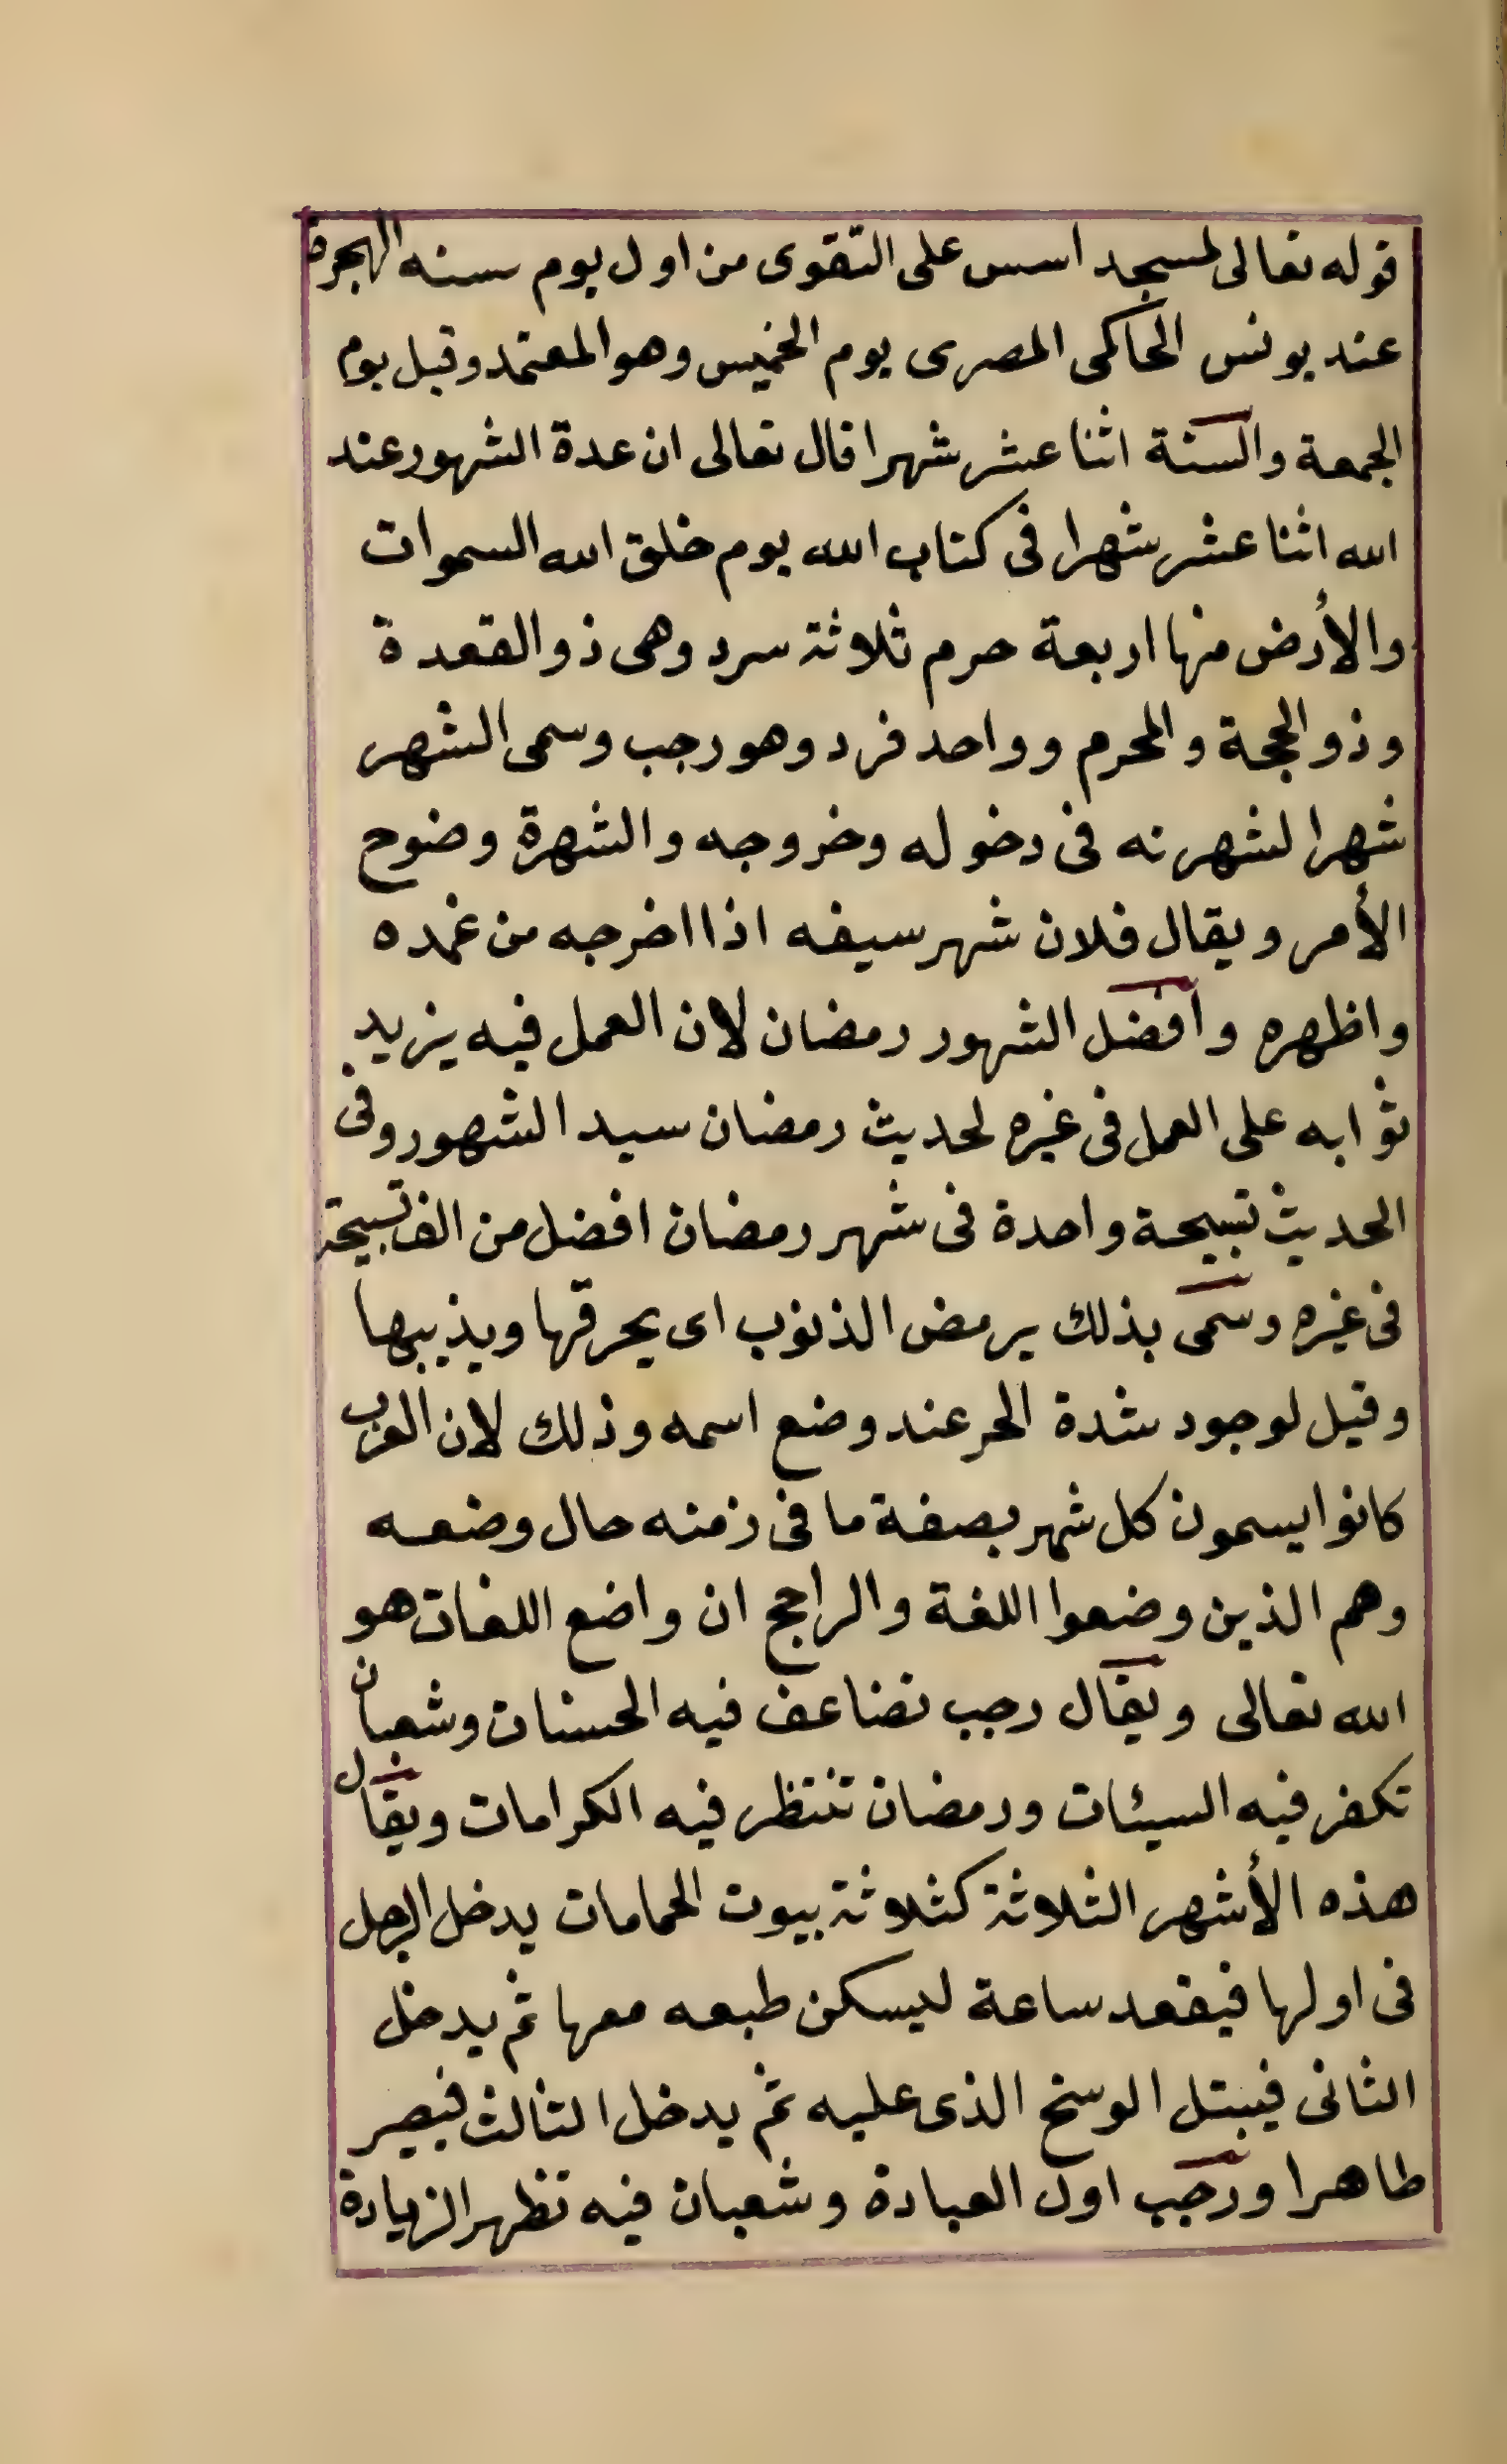 قوله تعالى لمسجد اسس على التقوى من اول يوم سنه الهجرة
عند يونس الحاكمى المصرى يوم الخميس وهو المعتمد وقيل يوم
الجمعة والسنة اثنا عشر شهرا قال تعالى ان عدة الشهور عند
الله اثنا عشر شهرا فى كتاب الله يوم خلق الله السموات
والأرض منها اربعة حرم ثلاثة سرد وهى ذو القعدة
وذو الحجة والمحرم وواحد فرد وهو رجب وسمى الشهر
شهرا لشهرته فى دخوله وخروجه والشهرة وضوح
الأمر ويقال فلان شهر سيفه اذا اخرجه من غمده
واظهره وأفضل الشهور رمضان لان العمل فيه يزيد
ثوابه على العمل فى غيره لحديث رمضان سيد الشهور وفى
الحديث تسبيحة واحدة فى شهر رمضان افضل من الف تسبيحة
فى غيره وسمى بذلك يرمض الذنوب اى يحرقها ويذيبها
وقيل لوجود شدة الحر عند وضع اسمه وذلك لان العرب
كانوا يسمون كل شهر بصفة ما فى زمنه حال وضعه
وهم الذين وضعوا اللغة والراجح ان واضع اللغات هو
الله تعالى ويقال رجب تضاعف فيه الحسنات وشعبان
تكفر فيه السيئات ورمضان تنتظر فيه الكرامات ويقال
هذه الأشهر الثلاثة كثلاثة بيوت الحمامات يدخل الرجل
فى اولها فيقعد ساعة ليسكن طبعه معها ثم يدخل
الثانى فيبتل الوسخ الذى عليه ثم يدخل الثالث فيصير
طاهرا ورجب اول العبادة وشعبان فيه تظهر الزيادة